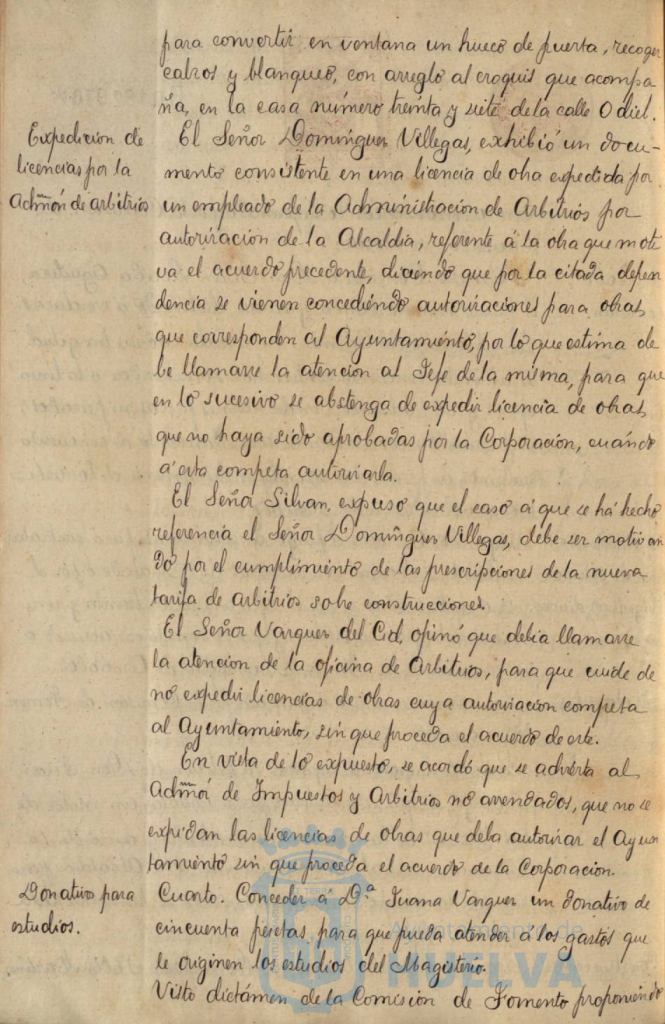 para convertir en ventana un hueco de puerta, recoger
calzos y blanqueo, con arreglo al croquis que acompa-
ña, en la casa número treinta y siete de la calle Odiel.
Expedicion de
licencias por la
Admon de arbitrios
El Señor Dominguez Villegas, exhibió un docu-
mento consistente en una licencia de obra expedida por
un empleado de la Administracion de Arbitrios por
autorizacion de la Alcaldia, referente á la obra que moti
va el acuerdo precedente, diciendo que por la citada depen
dencia se vienen concediendo autorizaciones para obras,
que corresponden al Ayuntamiento, por lo que estima de
be llamarse la atencion al Jefe de la misma, para que
en lo sucesivo se abstenga de expedir licencia de obras,
que no haya sido aprobadas por la Corporacion, cuando
á esta competa autorizarla.
El Señor Silvan, expuso que el caso á que se há hecho
referencia el Señor Dominguez Villegas, debe ser motiva
do por el cumplimiento de las prescripciones de la nueva
tarifa de Arbitrios sobre construcciones.
El Señor Vazquez del Cid, opinó que debia llamarse
la atencion de la oficina de Arbitrios, para que cuide de
no expedir licencias de obras cuya autorizacion competa
al Ayuntamiento, sin que proceda el acuerdo de este.
En vista de lo expuesto, se acordó que se advierta al
Admor de Impuestos y Arbitrios no arrendados, que no se
expidan las licencias de obras que deba autorizar el Ayun
tamiento sin que proceda el acuerdo de la Corporacion.
Donativo para
estudios.
Cuarto. Conceder á D.ª Juana Vazquez un donativo de
cincuenta pesetas, para que pueda atender á los gastos que
le originen los estudios del Magisterio.
Visto dictámen de la Comision de Fomento proponiendo
Ayuntamiento de
HUELVA